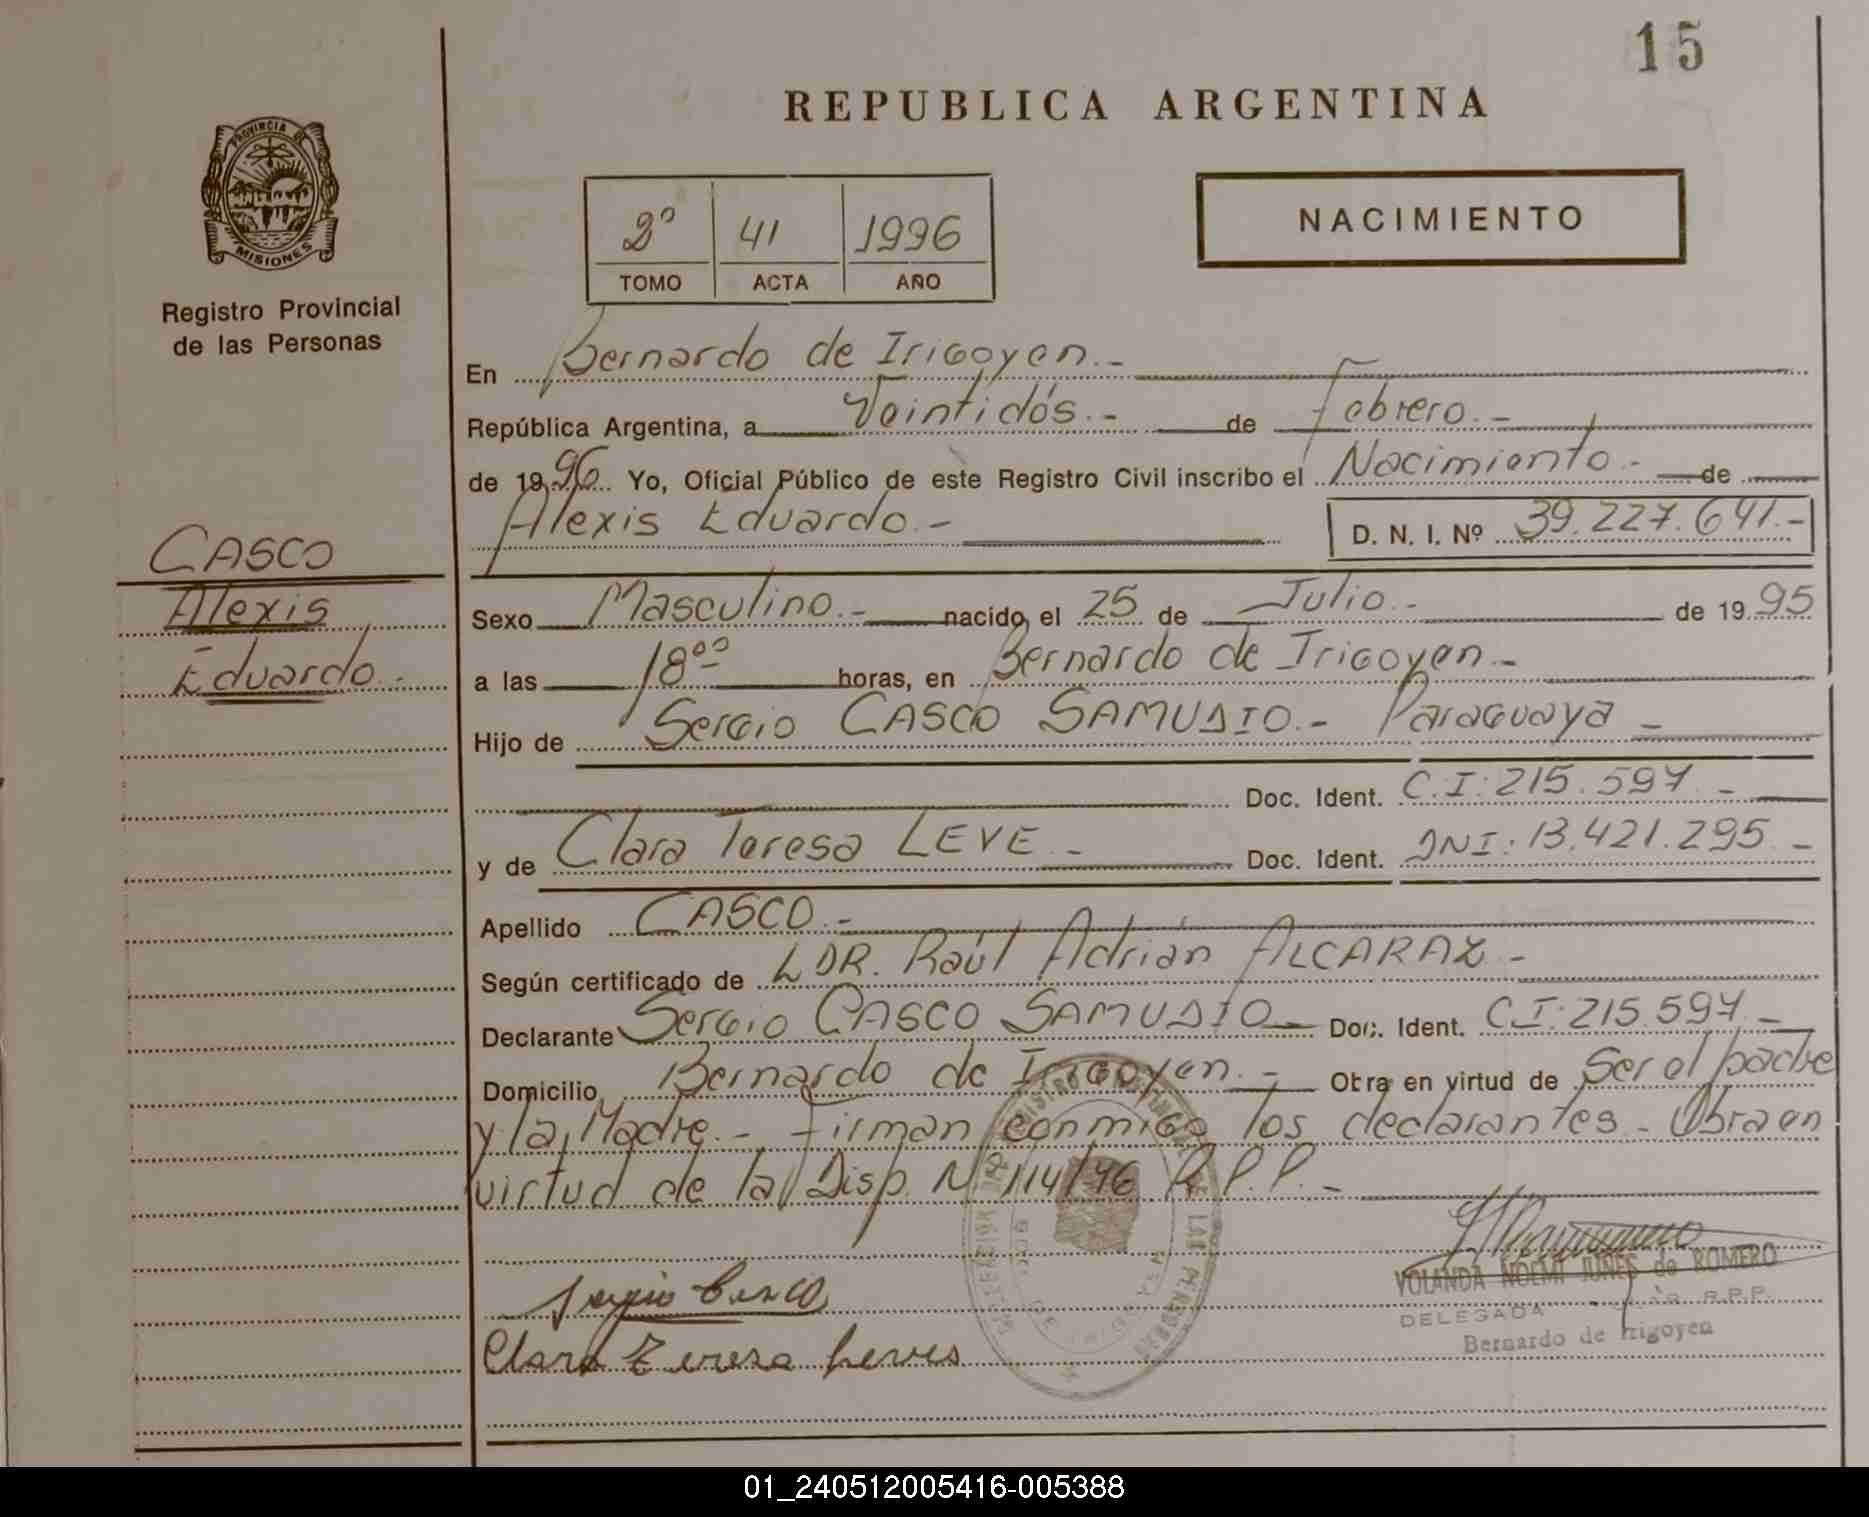 15
REPUBLICA ARGENTINA
PROVINCIA DE
MISIONES
Registro Provincial
de las Personas
2º 41 1996
TOMO ACTA AÑO
NACIMIENTO
En Bernardo de Irigoyen.-
República Argentina, a Veintidós.- de Febrero.-
de 1996 Yo, Oficial Público de este Registro Civil inscribo el Nacimiento.- de
Alexis Eduardo.- D. N. I. Nº 39.227.641.-
CASCO
Alexis
Eduardo.-
Sexo Masculino.- nacido el 25 de Julio.- de 1995
a las 18ºº horas, en Bernardo de Irigoyen.-
Hijo de Sergio CASCO SAMUDIO.- Paraguaya -
Doc. Ident. C.I: 215.597.-
y de Clara Teresa LEVE.- Doc. Ident. DNI: 13.421.295.-
Apellido CASCO.-
Según certificado de LDR. Raúl Adrián ALCARAZ.-
Declarante Sergio CASCO SAMUDIO.- Doc. Ident. C.I: 215.597.-
Domicilio Bernardo de Irigoyen.- Obra en virtud de Ser el padre
y la Madre.- Firman conmigo los declarantes.- Obra en
virtud de la Disp. Nº 114/76 R.P.P.-
Sergio Casco
Clara Teresa
YOLANDA NOEMI JUNES de ROMERO
DELEGADA R.P.P.
Bernardo de Irigoyen
01_240512005416-005388